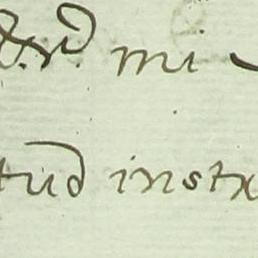 mi
tud instr